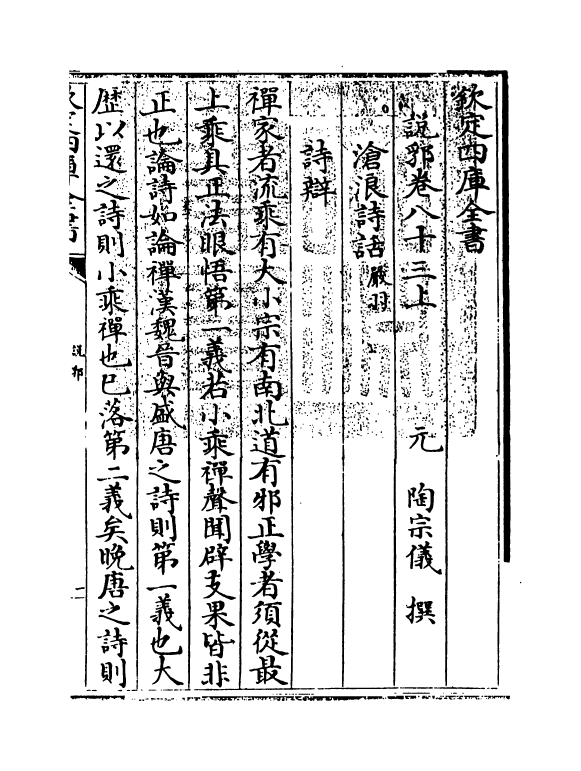 欽定四庫全書
說郛卷八十三上
元 陶宗儀 撰
滄浪詩話 嚴羽
詩辯
禪家者流乘有大小宗有南北道有邪正學者須從最
上乘具正法眼悟第一義若小乘禪聲聞辟支果皆非
正也論詩如論禪漢魏晉與盛唐之詩則第一義也大
歴以還之詩則小乘禪也已落第二義矣晚唐之詩則
欽定四庫全書
說郛